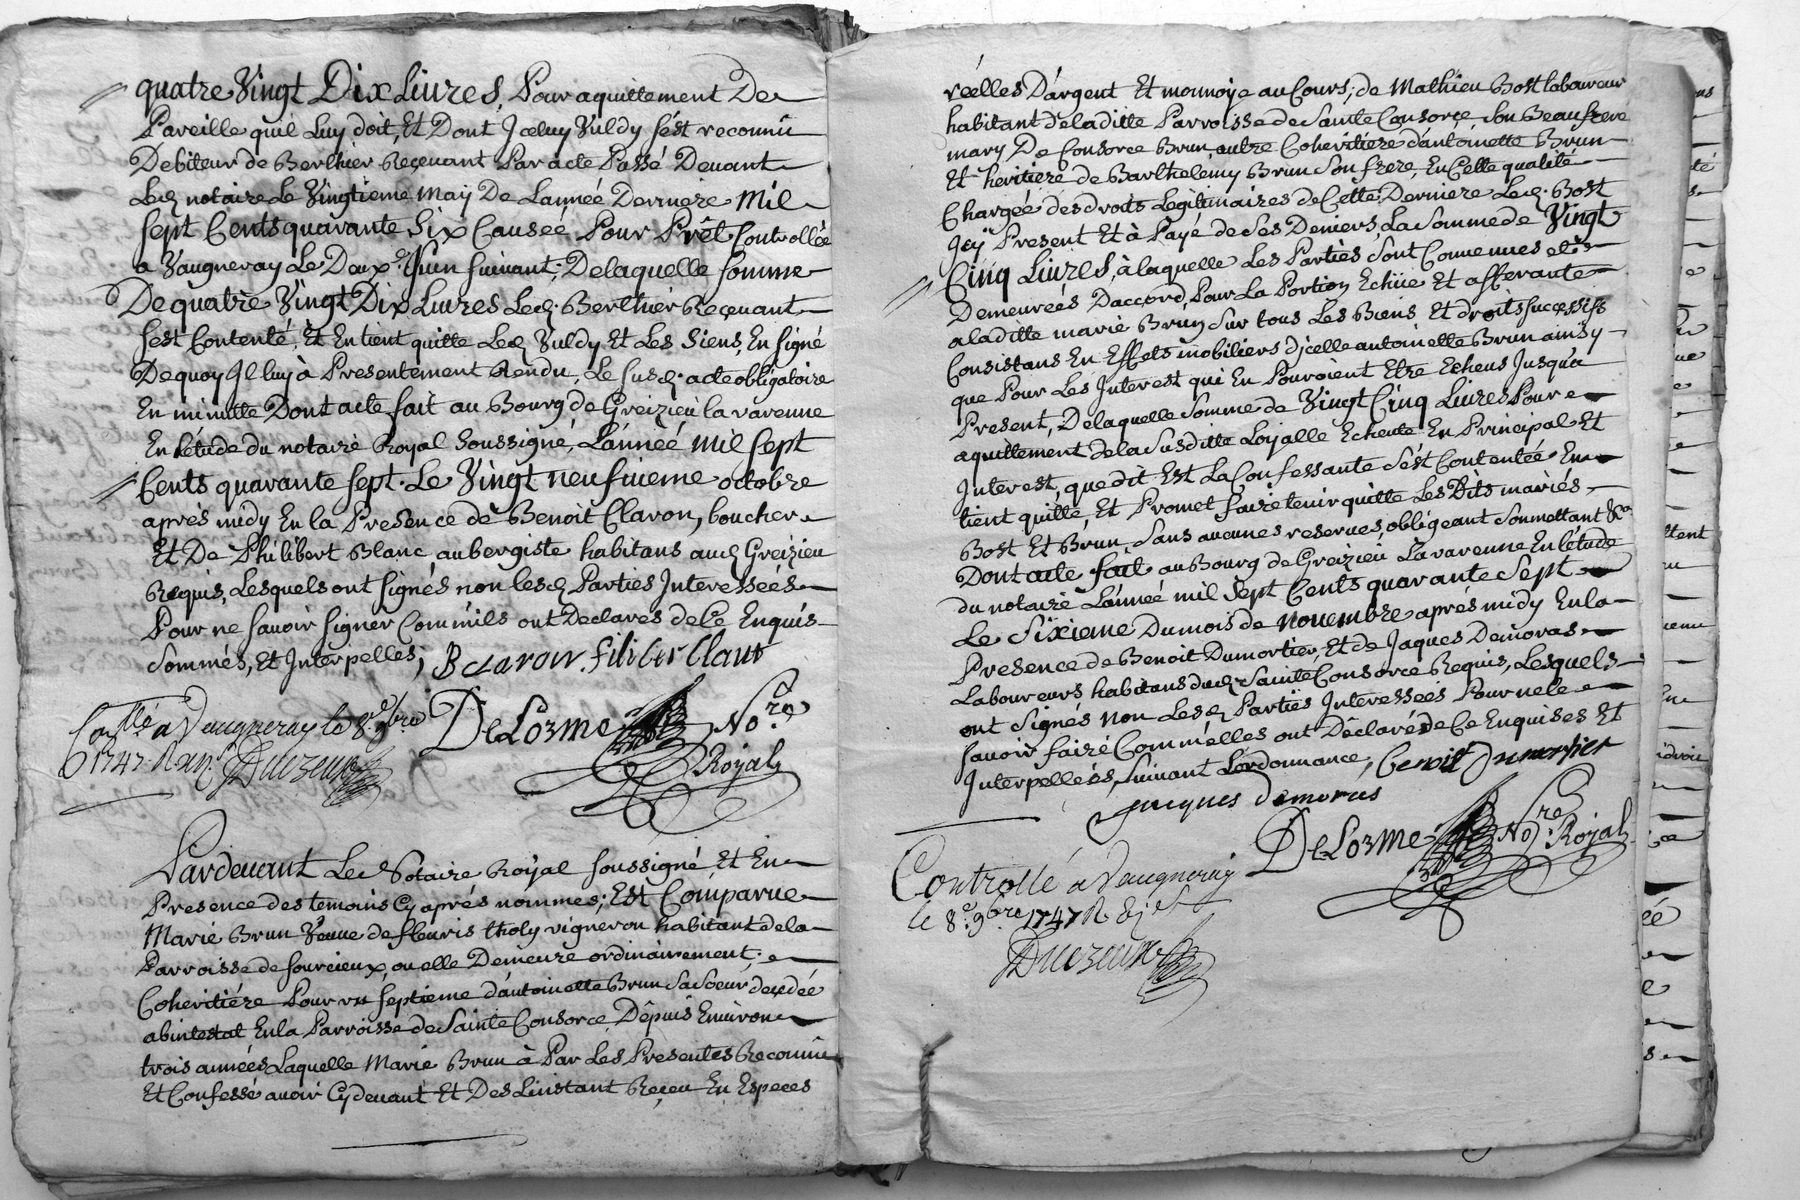 quatre Vingt Dix Livres, Pour aquittement De
Pareille qu'il Luy doit, Et Dont Jceluy Vuldy s'ést reconnû
Debiteur de Berthier Reçevant Par acte Passé Devant
Led notaire Le Vingtieme May De Lannée Derniere Mil
sept Cents quarante Six Causéé Pour Prêt Controllée
a Vaugneray Le Douxe Juin suivant; De laquelle somme
De quatre Vingt Dix Livres Led. Berthier Reçevant
s'est Contenté, Et En tient quitte Led Vuldy Et Les Siens, En signé
De quoy Jl luy à Presentement Rendu, Le susd. acte obligatoire
En minutte Dont acte fait au Bourg de Greizieu la varenne
En l'étude du notaire Royal Soussigné, L'annéé mil sept
Cents quarante sept. Le Vingt neufvieme octobre
aprés midy En la Presence de Benoit Claron, boucher
Et De Philibert Blanc aubergiste habitans aud Greizieu
Requis, Lesquels ont signés non lesd Parties Jnteresséés
Pour ne savoir signer Comm'ils ont Declarés de Ce Enquis
Sommés, Et Jnterpelles; B Claron filiber Blanc
Conllé a Vaugneray le 8e 9bre DeLorme No.re
1747 Royal
Pardevant Le Notaire Royal soussigné Et En
Presence des temoins Cy aprés nommes; Est Comparue
Marie Brun Veuve de fleuris tholy vigneron habitant de la
Parroisse de sourcieux, ou elle Demeure ordinairement
Coheritiére Pour un septieme d'antoinette Brun Sa Soeur, deçedéé
abintestat En la Parroisse de Sainte Consorce, Dépuis Environ
trois annéés Laquelle Marie Brun à Par Les Presentes Reconnû
Et Confessé avoir Cy devant Et Des Linstant Reçeu En Especes
réélles D'argent Et monnoye au Cours; de Mathieu Bost laboureur
habitant de laditte Parroisse de Sainte Consorce Son Beaufrere
mary De Consorce Brun, autre Coheritiére d'antoinette Brun
Et heritiere de Barthelemy Brun Son frere, En Cette qualité
Chargéé des droits Légitimaires de Cette Derniere Led. Bost
Jcy Present Et à Payé de Ses Deniers, La Somme de Vingt
Cinq Livres, à laquelle Les Partiés Sont Convenues et
Demeuréés D'accord, Pour La Portion Echüe Et afferante
a laditte marie Brun Sur tous Les Biens Et droits successifs
Consistans En Effets mobiliers d'jcelle antoinette Brun ainsy
que Pour Les Jnterest qui En Pouroient Etre Echeus Jusqu'a
Present, De laquelle Somme de Vingt Cinq Livres Pour
aquittement de la Susditte Loyalle Echeute En Principal Et
Jnterest, que dit Est La Confessante S'ést Contentéé En
tient quitte, Et Promet faire tenir quitte Les Dits mariés
Bost Et Brun, Sans aucunes reserves, obligeant Soumettant &c
Dont acte fait au Bourg de Greizieu La varenne En l'étude
du notaire L'annéé mil Sept Cents quarante Sept
Le Sixieme Du mois de Novembre aprés midy En la
Presence de Benoit Dumortier, Et de Jaques Demoras
Laboureurs habitans dud Sainte Consorce Requis, Lesquels
ont Signés non Les d Parties Jnteressées Pour ne le
savoir faire Comm'elles ont Déclaré de Ce Enquises Et
Jnterpelléés, Suivant L'ordonnance; benoit Dumortier
jacques demoras
DeLorme Nore Royal
Controllé a Vaugneray
le 8e 9bre 1747